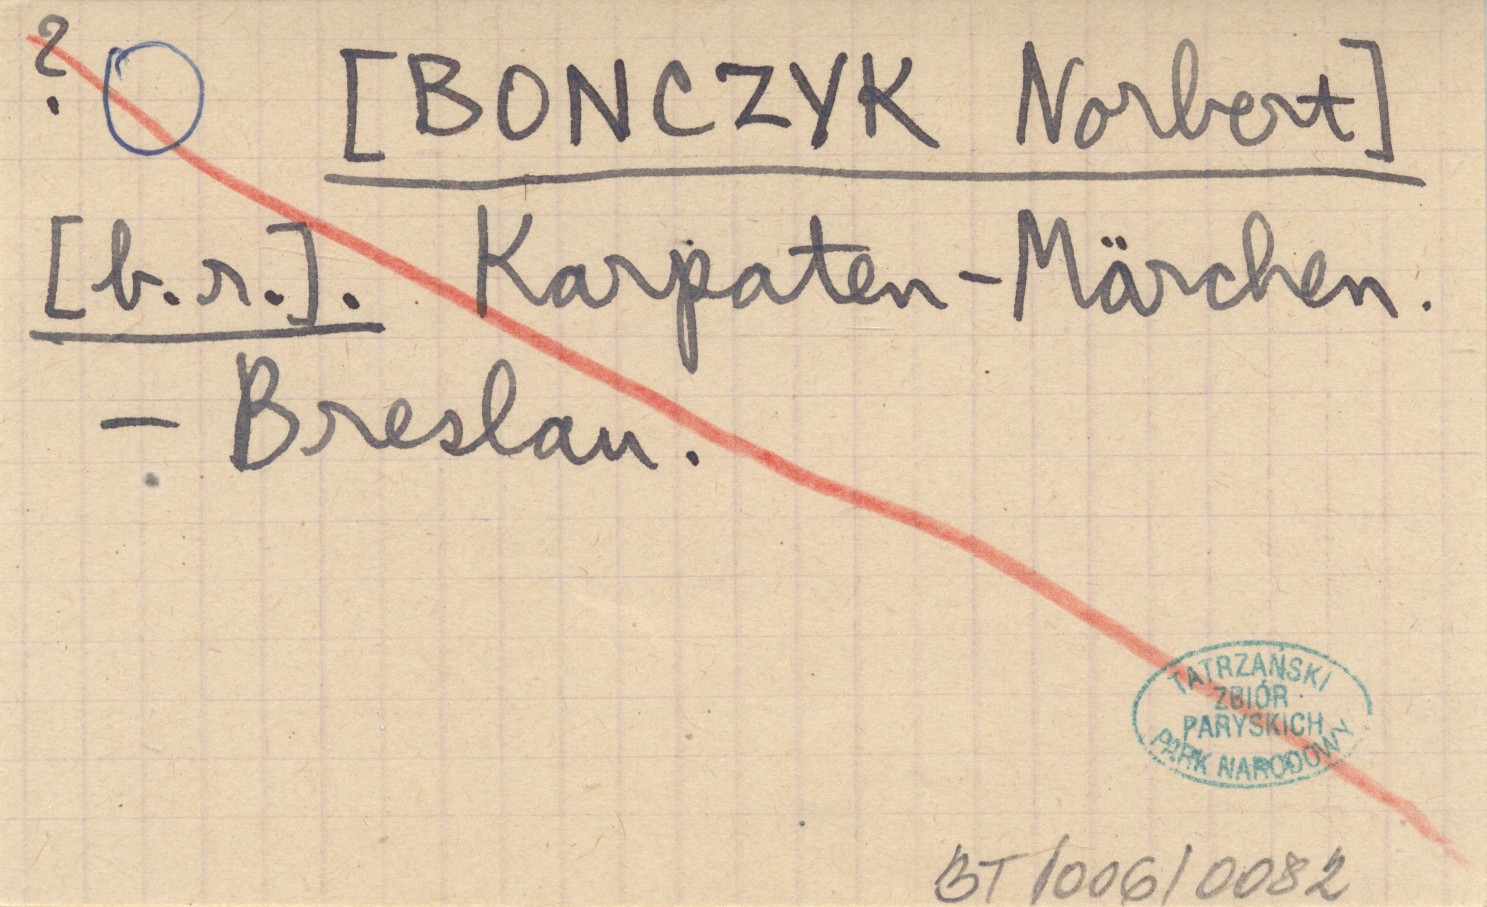 ?
[BONCZYK Norbert]
[b.r.]. Karpaten-Märchen.
- Breslau.
TATRZAŃSKI
ZBIÓR
PARYSKICH
PARK NARODOWY
BT/006/0082